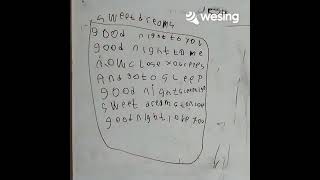 wesing
sweet dreams
good night to you
good night to me
now close your eyes
And go to sleep
good night
sweet dreams
good night i love you